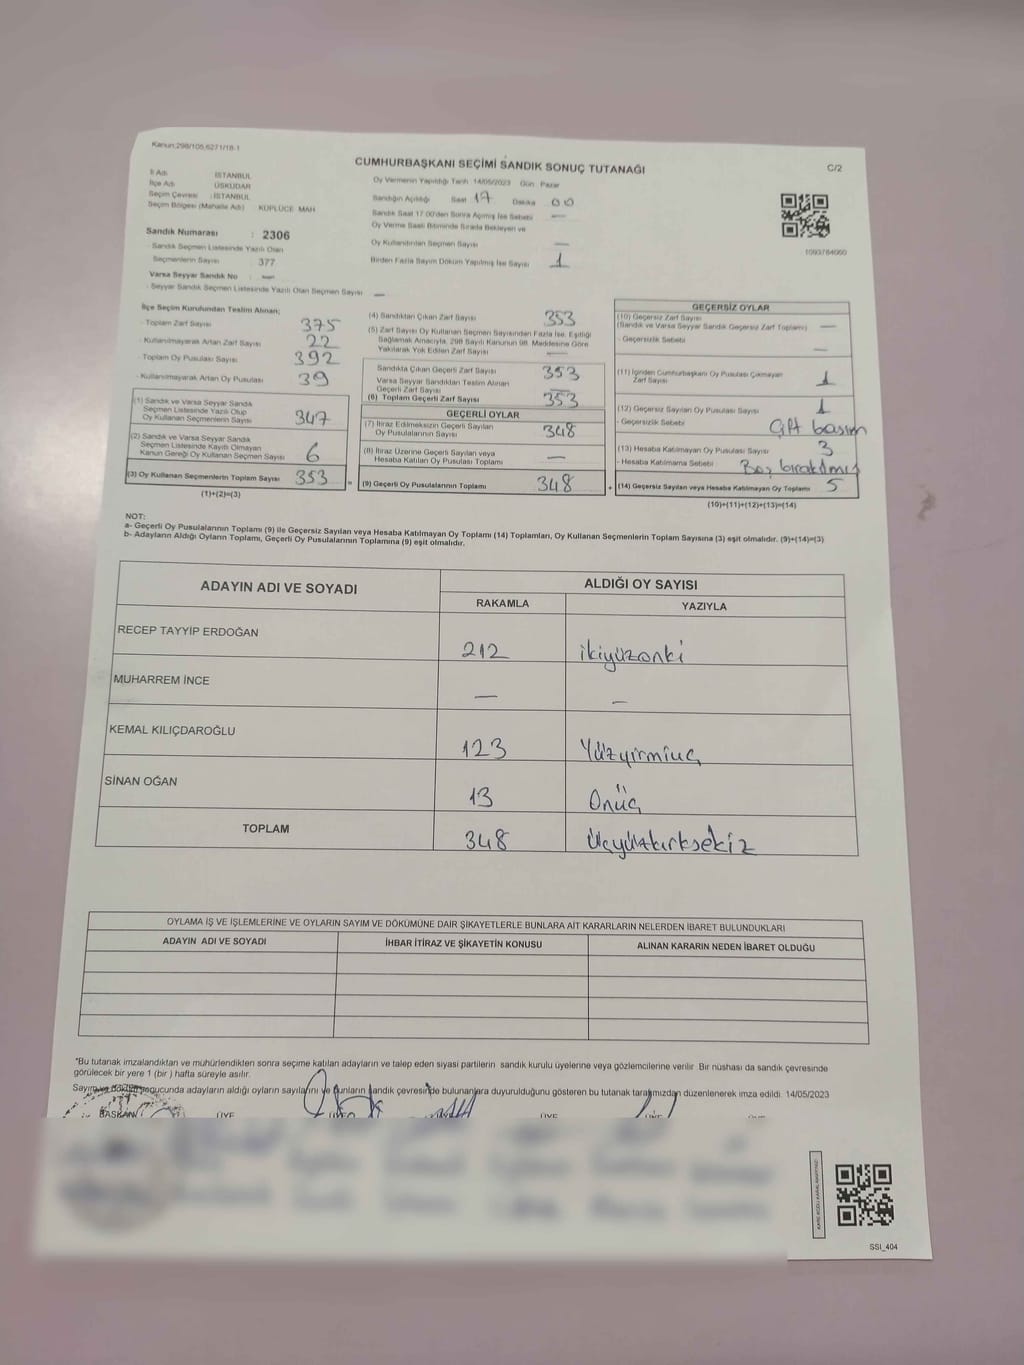 Kanun:298/105,6271/18-1
CUMHURBAŞKANI SEÇİMİ SANDIK SONUÇ TUTANAĞI
C/2
İl Adı İSTANBUL
İlçe Adı ÜSKÜDAR
Seçim Çevresi : İSTANBUL
Seçim Bölgesi (Mahalle Adı) KÜPLÜCE MAH
Sandık Numarası : 2306
- Sandık Seçmen Listesinde Yazılı Olan
Seçmenlerin Sayısı 377
Varsa Seyyar Sandık No : —
- Seyyar Sandık Seçmen Listesinde Yazılı Olan Seçmen Sayısı —
Oy Vermenin Yapıldığı Tarih 14/05/2023 Gün Pazar
Sandığın Açıldığı Saat 17 Dakika 00
Sandık Saat 17:00'den Sonra Açılmış İse Sebebi —
Oy Verme Saati Bitiminde Sırada Bekleyen ve
Oy Kullandırılan Seçmen Sayısı —
Birden Fazla Sayım Döküm Yapılmış İse Sayısı 1
1093784060
İlçe Seçim Kurulundan Teslim Alınan;
- Toplam Zarf Sayısı 375
- Kullanılmayarak Artan Zarf Sayısı 22
- Toplam Oy Pusulası Sayısı 392
- Kullanılmayarak Artan Oy Pusulası 39
(1) Sandık ve Varsa Seyyar Sandık
Seçmen Listesinde Yazılı Olup
Oy Kullanan Seçmenlerin Sayısı 347
(2) Sandık ve Varsa Seyyar Sandık
Seçmen Listesinde Kayıtlı Olmayan
Kanun Gereği Oy Kullanan Seçmen Sayısı 6
(3) Oy Kullanan Seçmenlerin Toplam Sayısı 353
(1)+(2)=(3)
(4) Sandıktan Çıkan Zarf Sayısı 353
(5) Zarf Sayısı Oy Kullanan Seçmen Sayısından Fazla İse, Eşitliği
Sağlamak Amacıyla, 298 Sayılı Kanunun 98. Maddesine Göre
Yakılarak Yok Edilen Zarf Sayısı —
Sandıkta Çıkan Geçerli Zarf Sayısı 353
Varsa Seyyar Sandıktan Teslim Alınan
Geçerli Zarf Sayısı —
(6) Toplam Geçerli Zarf Sayısı 353
GEÇERLİ OYLAR
(7) İtiraz Edilmeksizin Geçerli Sayılan
Oy Pusulalarının Sayısı 348
(8) İtiraz Üzerine Geçerli Sayılan veya
Hesaba Katılan Oy Pusulası Toplamı —
= (9) Geçerli Oy Pusulalarının Toplamı 348 +
GEÇERSİZ OYLAR
(10) Geçersiz Zarf Sayısı
(Sandık ve Varsa Seyyar Sandık Geçersiz Zarf Toplamı) —
- Geçersizlik Sebebi —
(11) İçinden Cumhurbaşkanı Oy Pusulası Çıkmayan
Zarf Sayısı 1
(12) Geçersiz Sayılan Oy Pusulası Sayısı 1
- Geçersizlik Sebebi Çift basım
(13) Hesaba Katılmayan Oy Pusulası Sayısı 3
- Hesaba Katılmama Sebebi Boş bırakılmış
(14) Geçersiz Sayılan veya Hesaba Katılmayan Oy Toplamı 5
(10)+(11)+(12)+(13)=(14)
NOT:
a- Geçerli Oy Pusulalarının Toplamı (9) ile Geçersiz Sayılan veya Hesaba Katılmayan Oy Toplamı (14) Toplamları, Oy Kullanan Seçmenlerin Toplam Sayısına (3) eşit olmalıdır. (9)+(14)=(3)
b- Adayların Aldığı Oyların Toplamı, Geçerli Oy Pusulalarının Toplamına (9) eşit olmalıdır.
ADAYIN ADI VE SOYADI ALDIĞI OY SAYISI
RAKAMLA YAZIYLA
RECEP TAYYİP ERDOĞAN 212 ikiyüzonki
MUHARREM İNCE — —
KEMAL KILIÇDAROĞLU 123 Yüzyirmiüç
SİNAN OĞAN 13 Onüç
TOPLAM 348 Üçyüzkırksekiz
OYLAMA İŞ VE İŞLEMLERİNE VE OYLARIN SAYIM VE DÖKÜMÜNE DAİR ŞİKAYETLERLE BUNLARA AİT KARARLARIN NELERDEN İBARET BULUNDUKLARI
ADAYIN ADI VE SOYADI İHBAR İTİRAZ VE ŞİKAYETİN KONUSU ALINAN KARARIN NEDEN İBARET OLDUĞU
"Bu tutanak imzalandıktan ve mühürlendikten sonra seçime katılan adayların ve talep eden siyasi partilerin sandık kurulu üyelerine veya gözlemcilerine verilir. Bir nüshası da sandık çevresinde
görülecek bir yere 1 (bir ) hafta süreyle asılır.
Sayım ve döküm sonucunda adayların aldığı oyların sayılarını ve bunların sandık çevresinde bulunanlara duyurulduğunu gösteren bu tutanak tarafımızdan düzenlenerek imza edildi. 14/05/2023
BAŞKAN ÜYE ÜYE
SSİ_404